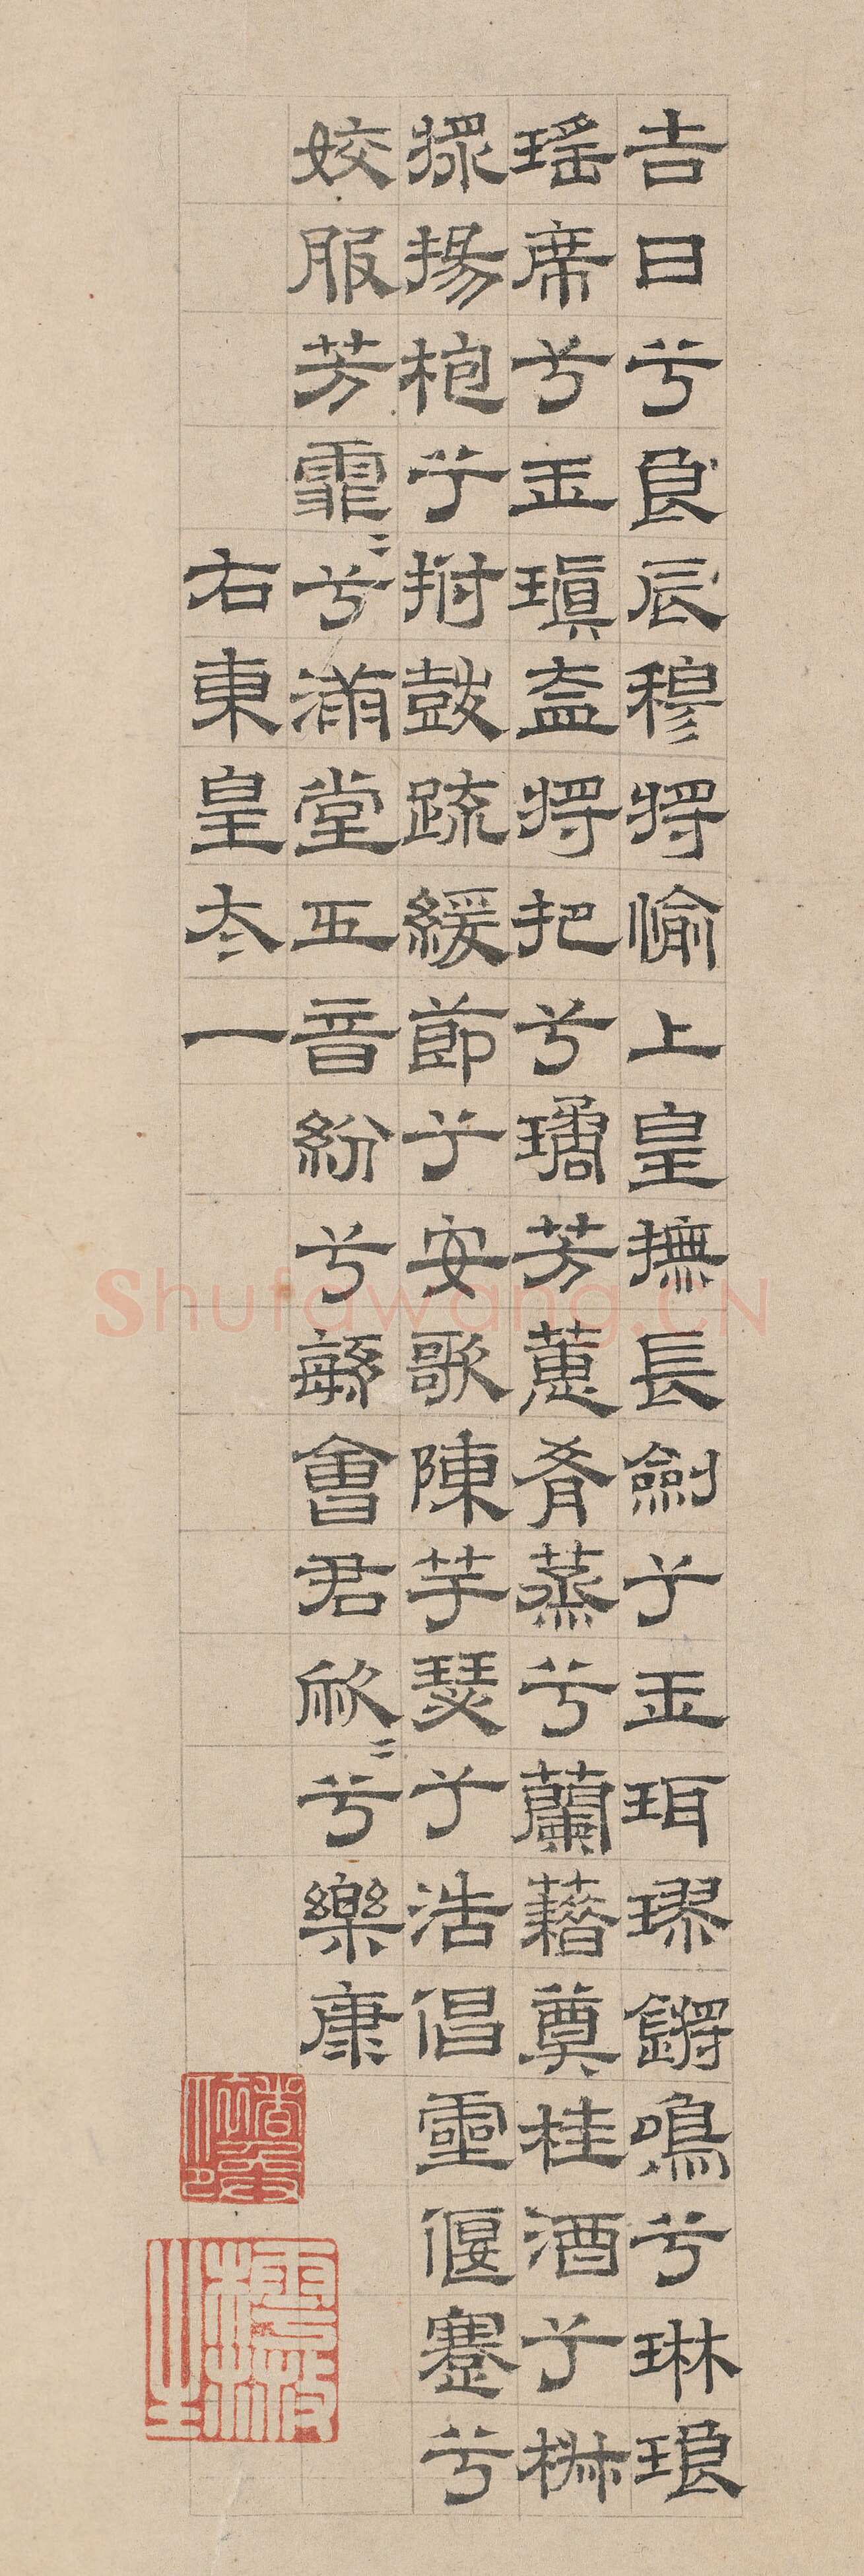 吉日兮良辰穆將愉上皇撫長劍兮玉珥璆鏘鳴兮琳琅
瑤席兮玉瑱盍將把兮璚芳蕙肴蒸兮蘭藉奠桂酒兮椒
漿揚枹兮拊鼓疏緩節兮安歌陳竽瑟兮浩倡靈偃蹇兮
姣服芳霏〻兮滿堂五音紛兮繁會君欣〻兮樂康
右東皇太一
Shufawang.CN